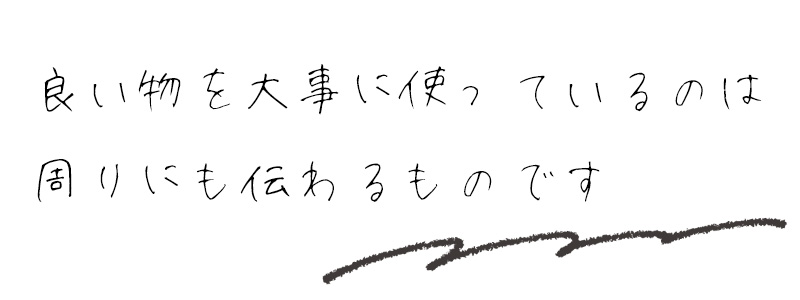 良い物を大事に使っているのは
周りにも伝わるものです